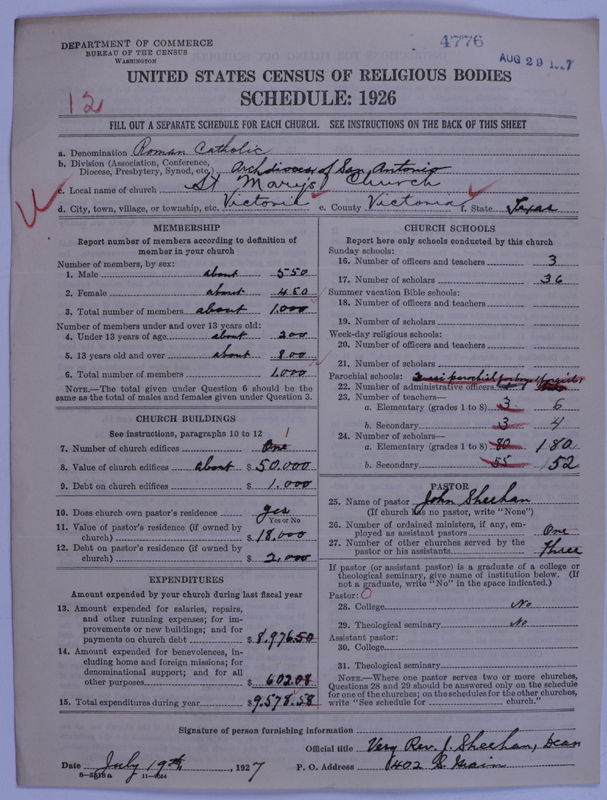 DEPARTMENT OF COMMERCE
BUREAU OF THE CENSUS
WASHINGTON
4776
AUG 29 1927
UNITED STATES CENSUS OF RELIGIOUS BODIES
SCHEDULE: 1926
12
FILL OUT A SEPARATE SCHEDULE FOR EACH CHURCH. SEE INSTRUCTIONS ON THE BACK OF THIS SHEET
a. Denomination Roman Catholic
b. Division (Association, Conference,
Diocese, Presbytery, Synod, etc.) Archdiocese of San Antonio
c. Local name of church St Mary's Church
d. City, town, village, or township, etc. Victoria e. County Victoria f. State Texas
MEMBERSHIP
Report number of members according to definition of
member in your church
Number of members, by sex:
1. Male about 550
2. Female about 450
3. Total number of members about 1,000
Number of members under and over 13 years old:
4. Under 13 years of age about 200
5. 13 years old and over about 800
6. Total number of members 1,000
NOTE.—The total given under Question 6 should be the
same as the total of males and females given under Question 3.
CHURCH BUILDINGS
See instructions, paragraphs 10 to 12
7. Number of church edifices One 1
8. Value of church edifices about $ 50,000
9. Debt on church edifices $ 1,000
10. Does church own pastor's residence? yes
Yes or No
11. Value of pastor's residence (if owned by
church) $ 18,000
12. Debt on pastor's residence (if owned by
church) $ 2,000
EXPENDITURES
Amount expended by your church during last fiscal year
13. Amount expended for salaries, repairs,
and other running expenses; for im-
provements or new buildings; and for
payments on church debt $ 8,976.50
14. Amount expended for benevolences, in-
cluding home and foreign missions; for
denominational support; and for all
other purposes $ 602.08
15. Total expenditures during year $ 9,578.58
CHURCH SCHOOLS
Report here only schools conducted by this church
Sunday schools:
16. Number of officers and teachers 3
17. Number of scholars 36
Summer vacation Bible schools:
18. Number of officers and teachers
19. Number of scholars
Week-day religious schools:
20. Number of officers and teachers
21. Number of scholars
Parochial schools:
22. Number of administrative officers
23. Number of teachers—
a. Elementary (grades 1 to 8) 3 6
b. Secondary 3 4
24. Number of scholars—
a. Elementary (grades 1 to 8) 80 180
b. Secondary 55 152
PASTOR
25. Name of pastor John Sheehan
(If church has no pastor, write "None")
26. Number of ordained ministers, if any, em-
ployed as assistant pastors One
27. Number of other churches served by the
pastor or his assistants Three
If pastor (or assistant pastor) is a graduate of a college or
theological seminary, give name of institution below. (If
not a graduate, write "No" in the space indicated.)
Pastor: 0
28. College No
29. Theological seminary No
Assistant pastor:
30. College
31. Theological seminary
NOTE.—Where one pastor serves two or more churches,
Questions 28 and 29 should be answered only on the schedule
for one of the churches; on the schedules for the other churches,
write "See schedule for church."
Signature of person furnishing information
Official title Very Rev. J. Sheehan, Dean
Date July 19th, 1927 P. O. Address 402 S. Main